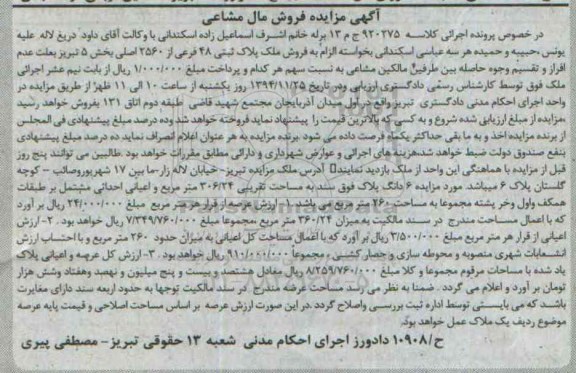 آگهی مزایده فروش مال مشاعی
در خصوص پرونده اجرائی کلاسه ۹۲۰۲۷۵ ج م ۱۳ برله خانم اشرف اسماعیل زاده اسکندانی با وکالت آقای داود دریغ لاله علیه
یونس ،حبیبه و حمیده هر سه عباسی اسکندانی بخواسته الزام به فروش ملک پلاک ثبتی ۴۸ فرعی از ۲۵۶۰ اصلی بخش ۵ تبریز بعلت عدم
افراز و تقسیم وجوه حاصله بین طرفین مالکین مشاعی به نسبت سهم هر کدام و پرداخت مبلغ ۱/۰۰۰/۰۰۰ ریال از بابت نیم عشر اجرائی
ملک فوق توسط کارشناس رسمی دادگستری ارزیابی ودر تاریخ ۱۳۹۴/۱۱/۲۵ روز یکشنبه از ساعت ۱۰ الی ۱۱ ظهر از طریق مزایده در
واحد اجرای احکام مدنی دادگستری تبریز واقع در اول میدان آذربایجان مجتمع شهید قاضی طبقه دوم اتاق ۱۳۱ بفروش خواهد رسید
،مزایده از مبلغ ارزیابی شده شروع و به کسی که بالاترین قیمت را پیشنهاد نماید فروخته خواهد شد وده درصد مبلغ پیشنهادی فی المجلس
از برنده مزایده اخذ و به ما بقی حداکثر یکماه فرصت داده می شود .برنده مزایده به هر عنوان اعلام انصراف نماید ده درصد مبلغ پیشنهادی
بنفع صندوق دولت ضبط خواهد شد،هزینه های اجرائی و عوارض شهرداری و دارائی مطابق مقررات خواهد بود .طالبین می توانند پنج روز
قبل از مزایده با هماهنگی این واحد از ملک بازدید نمایند آدرس ملک مزایده تبریز- خیابان لاله زار-ما بین ۱۷ شهریور وصائب - کوچه
گلستان پلاک ۶ میباشد. مورد مزایده ۶ دانگ پلاک فوق سند به مساحت تقریبی ۳۰۶/۲۴ متر مربع و اعیانی احداثی مشتمل بر طبقات
همکف واول وخر پشته مجموعا به مساحت ۲۶۰ متر مربع می باشد. ۱- ارزش عرصه از قرار هر متر مربع مبلغ ۲۴/۰۰۰/۰۰۰ ریال بر آورد
که با اعمال مساحت مندرج در سند مالکیت بعمیزان ۳۶۰/۲۴ متر مربع ،مجموعا مبلغ ۷/۳۴۹/۷۶۰/۰۰۰ ریال خواهد بود . ۲- ارزش
اعیانی از قرار هر متر مربع مبلغ ۳/۵۰۰/۰۰۰ ریال بر آورد که با اعمال مساحت کل اعیانی به میزان حدود ۲۶۰ متر مربع و با احتساب ارزش
انشعابات شهری منصوبه و محوطه سازی و حصار کشی ، مجموعا ۹۱۰/۰۰۰/۰۰۰ ریال خواهد بود . ۳- ارزش کل عرصه و اعیانی پلاک
یاد شده با مساحات مرقوم مجموعا و کلا مبلغ ۸/۲۵۹/۷۶۰/۰۰۰ ریال معادل هشتصد و بیست و پنج میلیون و نهصد وهفتاد وشش هزار
تومان بر آورد و اعلام می گردد . ضمنا به نظر می رسد مساحت عرصه مندرج در سند مالکیت توجها به حدود اربعه سند دارای مغایرت
باشد که می بایستی توسط اداره ثبت بررسی واصلاح گردد .در این صورت ارزش عرصه بر اساس مساحت اصلاحی و قیمت پایه عرصه
موضوع ردیف یک ملاک عمل خواهد بود.
ح/۱۰۹۰۸ دادورز اجرای احکام مدنی شعبه ۱۳ حقوقی تبریز- مصطفی پیری